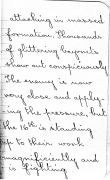 attacking in massed
formation. Thousands
of glittering bayonets
show out conspicuously
The enemy is now
very close and apply-
ing the pressure, but
the 16th is standing
up to their work
magnificently and
is fighting